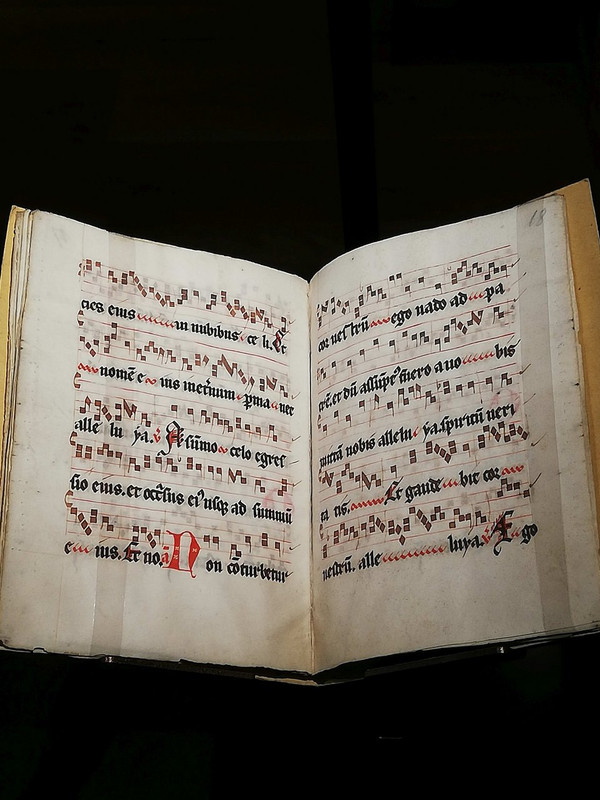 cies eius in nubibus ce li. Et
nomē e ius ineternum pma net
alle lu ya. A sūmo celo egreſ
ſio eius. et occurſus ei⁹ uſqꝫ ad ſummū
e ius. Et no N on cōturbetur
18
cor neſtrū ego uado ad pa
trē. et dū aſſūpt⁹ fuero a uo bis
mittā nobis allelu ya. ſpiritū ueri
ta tis. Et gaude bit cor
neſtrū. alle luya. E go